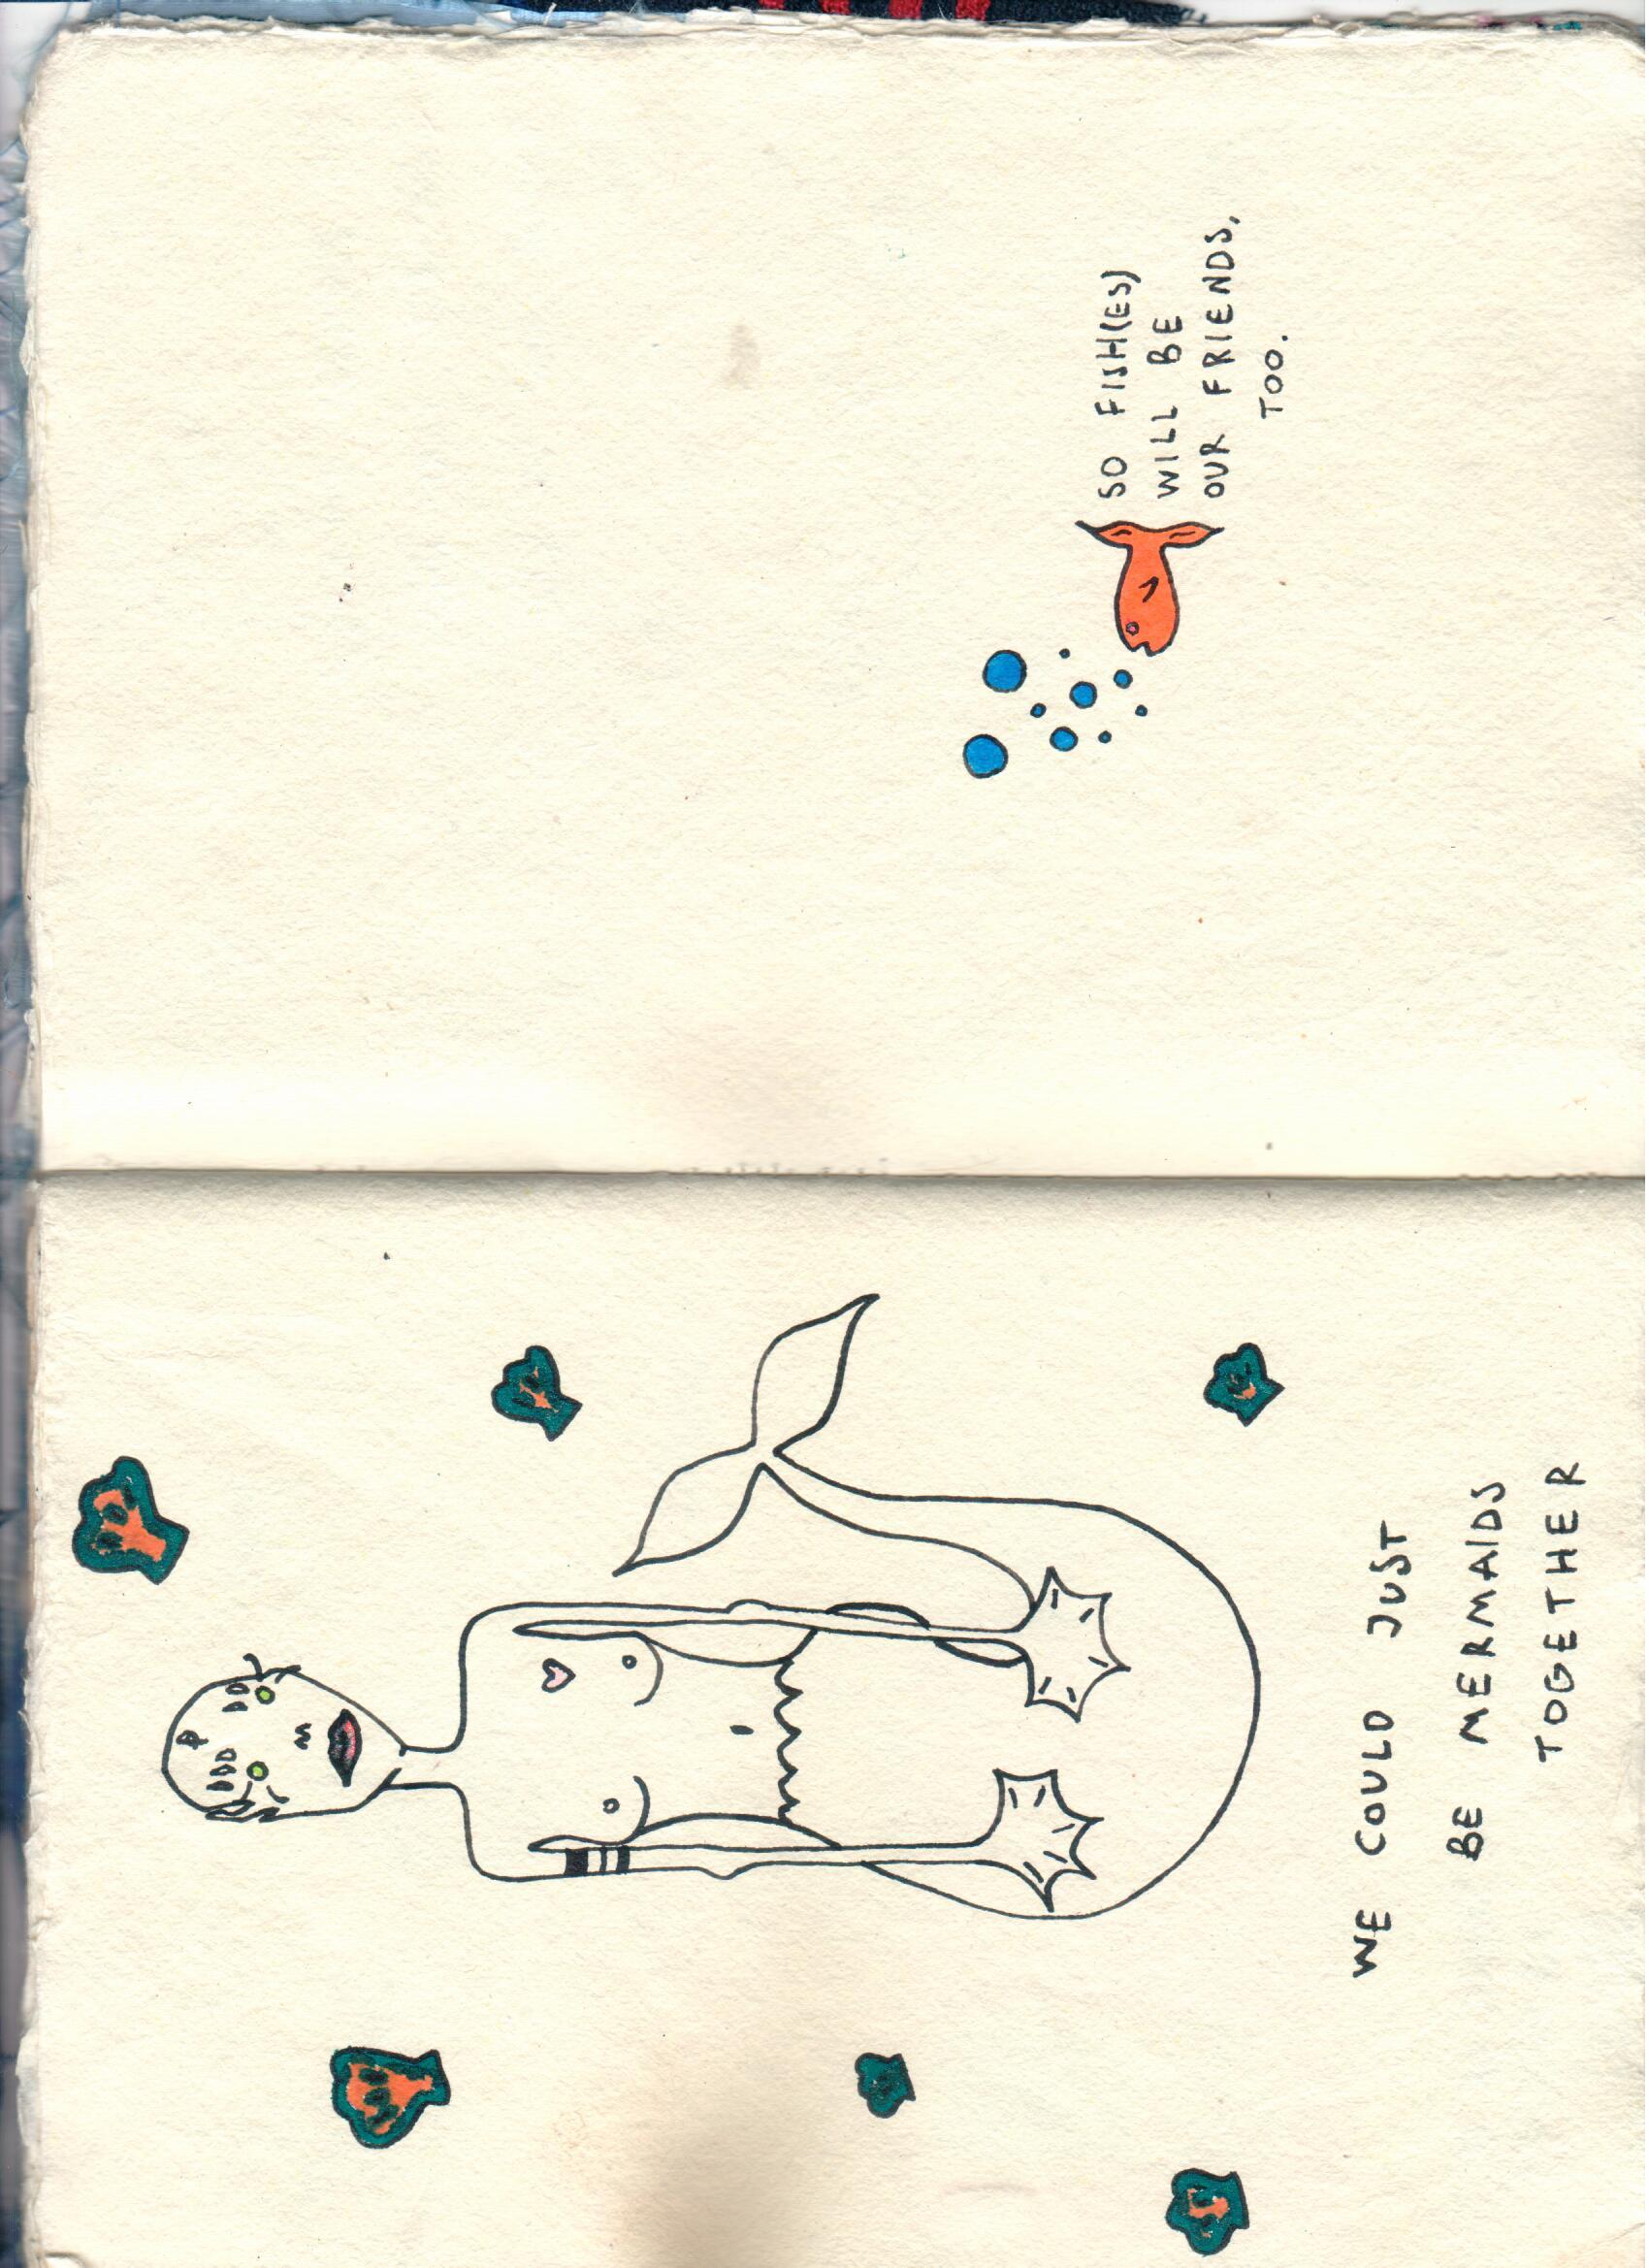 WE COULD JUST
BE MERMAIDS
TOGETHER
SO FISH(ES)
WILL BE
OUR FRIENDS,
TOO.